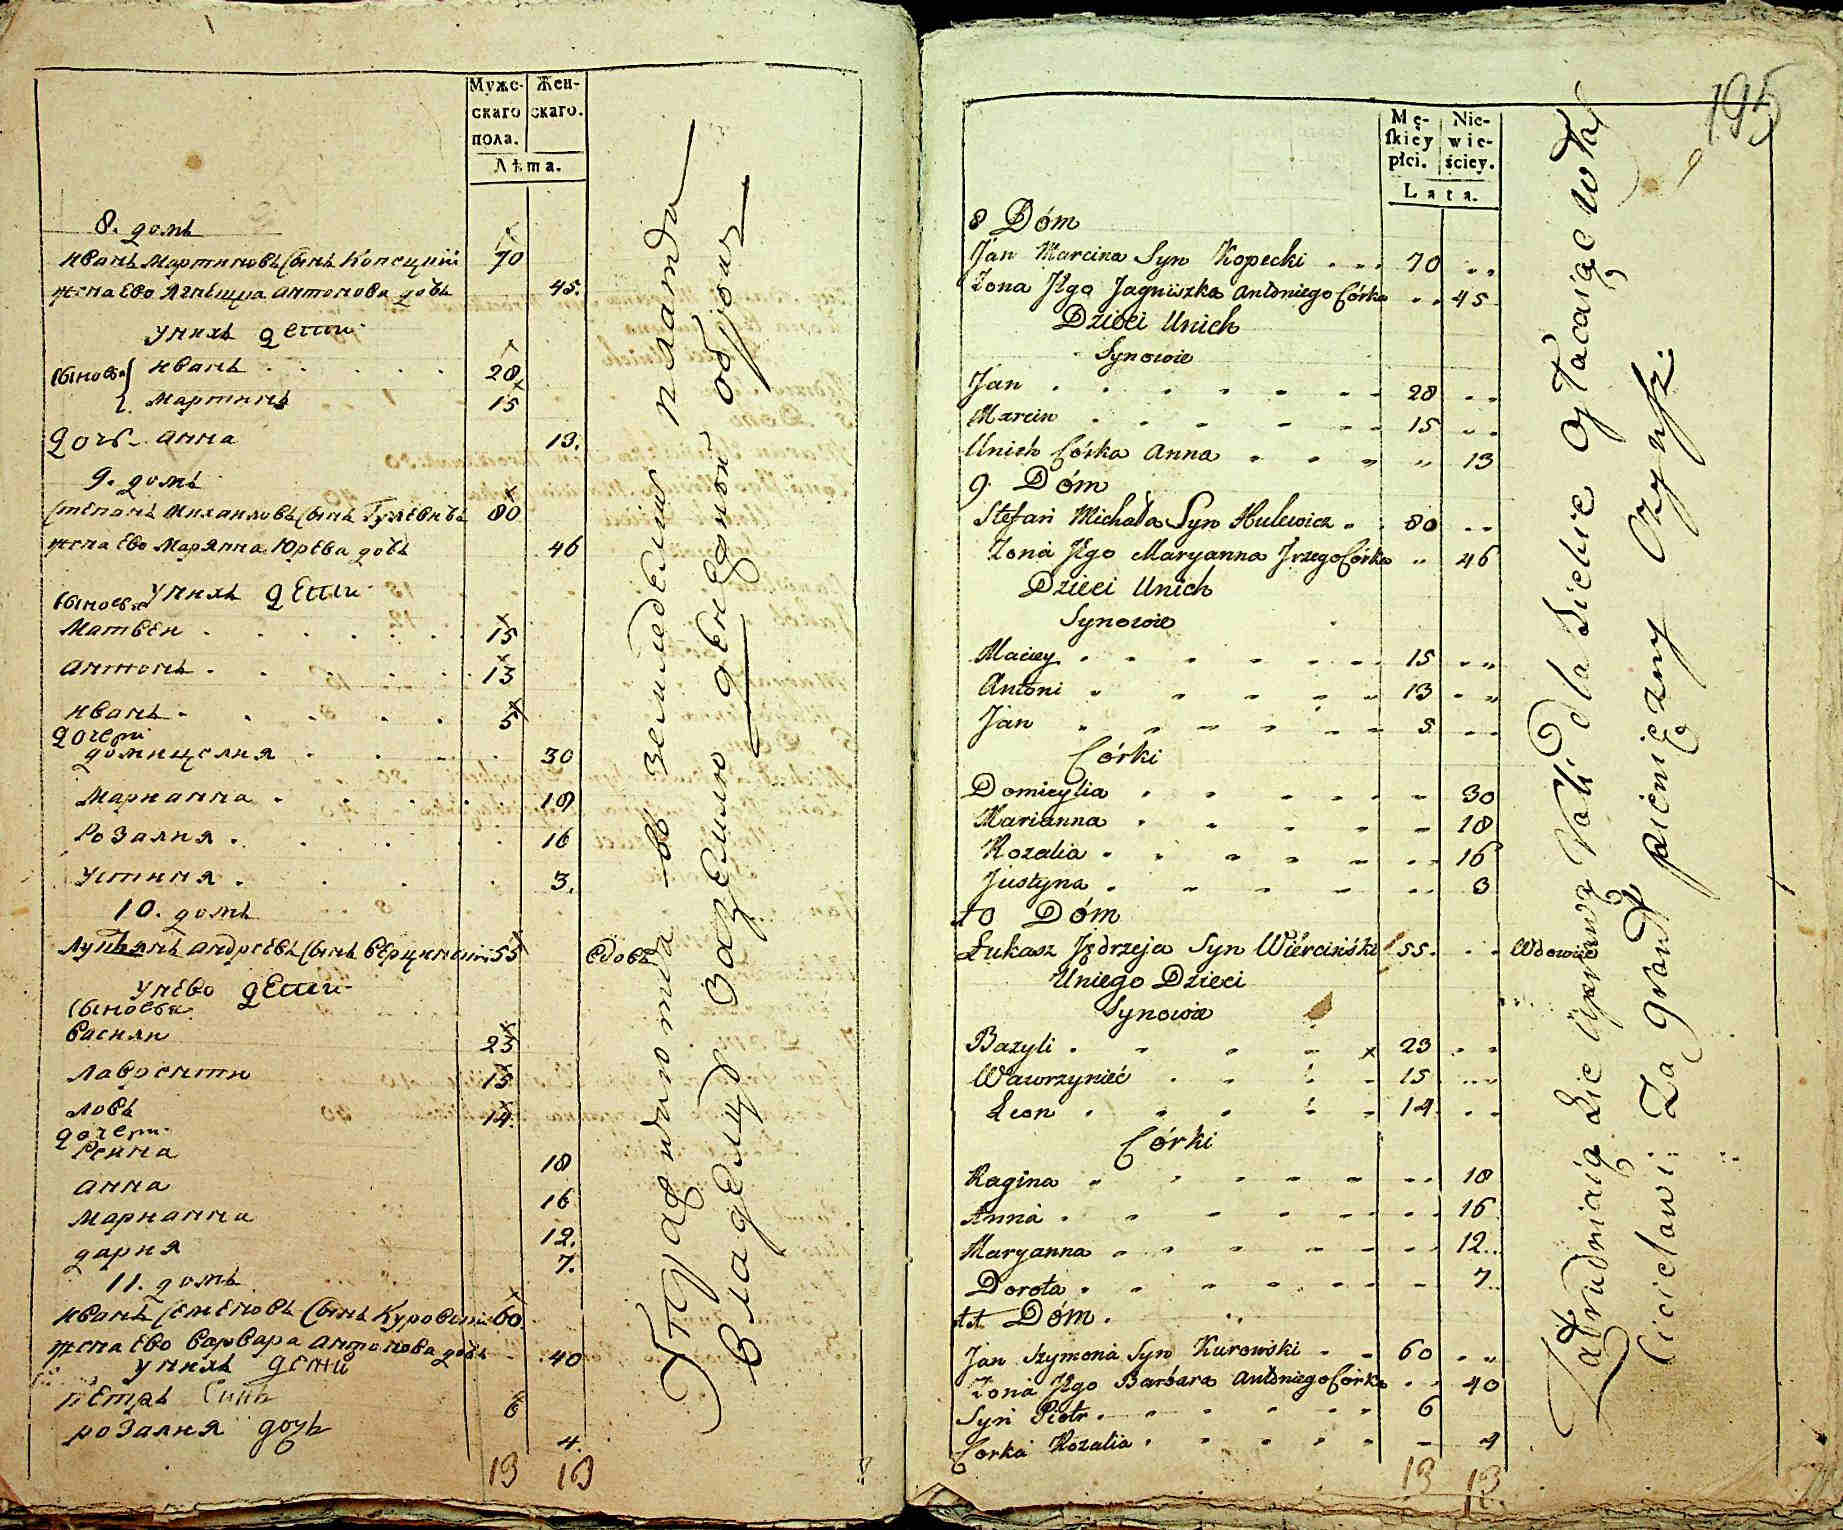 Мужс-
скаго
пола.
Жен-
скаго.
Лѣта.
8. домъ
Иванъ Мартиновъ Сынъ Копецкий 70
жена Ево Агнешка Антонова дочь 45.
у нихъ дети
Сыновья Иванъ 28
Мартинъ 15
Дочь Анна 13.
9. домъ
Степанъ Михаиловъ Сынъ Гулевичъ 80
жена Ево Марянна Юрева дочь 46
у нихъ дети
Сыновья
Матвеи 15
Антонъ 13
Иванъ 5
Дочери
Домицелия 30
Марианна 18
Розалия 16
Устиния 3.
10. домъ
Лукьянъ Андреевъ Сынъ Верцинский 55 вдовъ
у Нево дети
Сыновья
Васили 23
Лаврентий 15
Левъ 14.
дочери
Регина 18
Анна 16
Марианна 12.
Дария 7.
11. домъ
Иванъ Семеновъ Сынъ Куровский 60.
жена Ево Варвара Антонова дочь 40
у нихъ дети
Петръ Синъ 6
Розалия дочь 4.
13 13
владелцу За Землю денежной
195
Mę-
skiéy
płci.
Nie-
wie-
ściey.
Lata.
8 Dóm
Jan Marcina Syn Kopecki 70
Żona Jego Jagniszka Antoniego Córka 45
Dzieci Unich
Synowie
Jan 28
Marcin 15
Unich Córka Anna 13
9 Dóm
Stefan Michała Syn Hulewicz 80
Żona Jego Maryanna Jrzego Córka 46
Dzieci Unich
Synowie
Maciey 15
Antoni 13
Jan 5
Córki
Domicylia 30
Marianna 18
Rozalia 16
Justyna 3
10 Dóm
Łukasz Jędrzeja Syn Wierciński 55 Wdowiec
Uniego Dzieci
Synowie
Bazyli 23
Wawrzynieć 15
Leon 14
Córki
Ragina 18
Anna 16
Maryanna 12
Dorota 7
11 Dóm
Jan Szymona Syn Kurowski 60
Żona Jego Barbara Antoniego Córka 40
Syn Piotr 6
Corka Rozalia 4
13 13
Zatrudniaią Się Uprawą Roli dla Siebie opłacaiąc w
Cicielowi Za grunt pieniężny Czynsz.